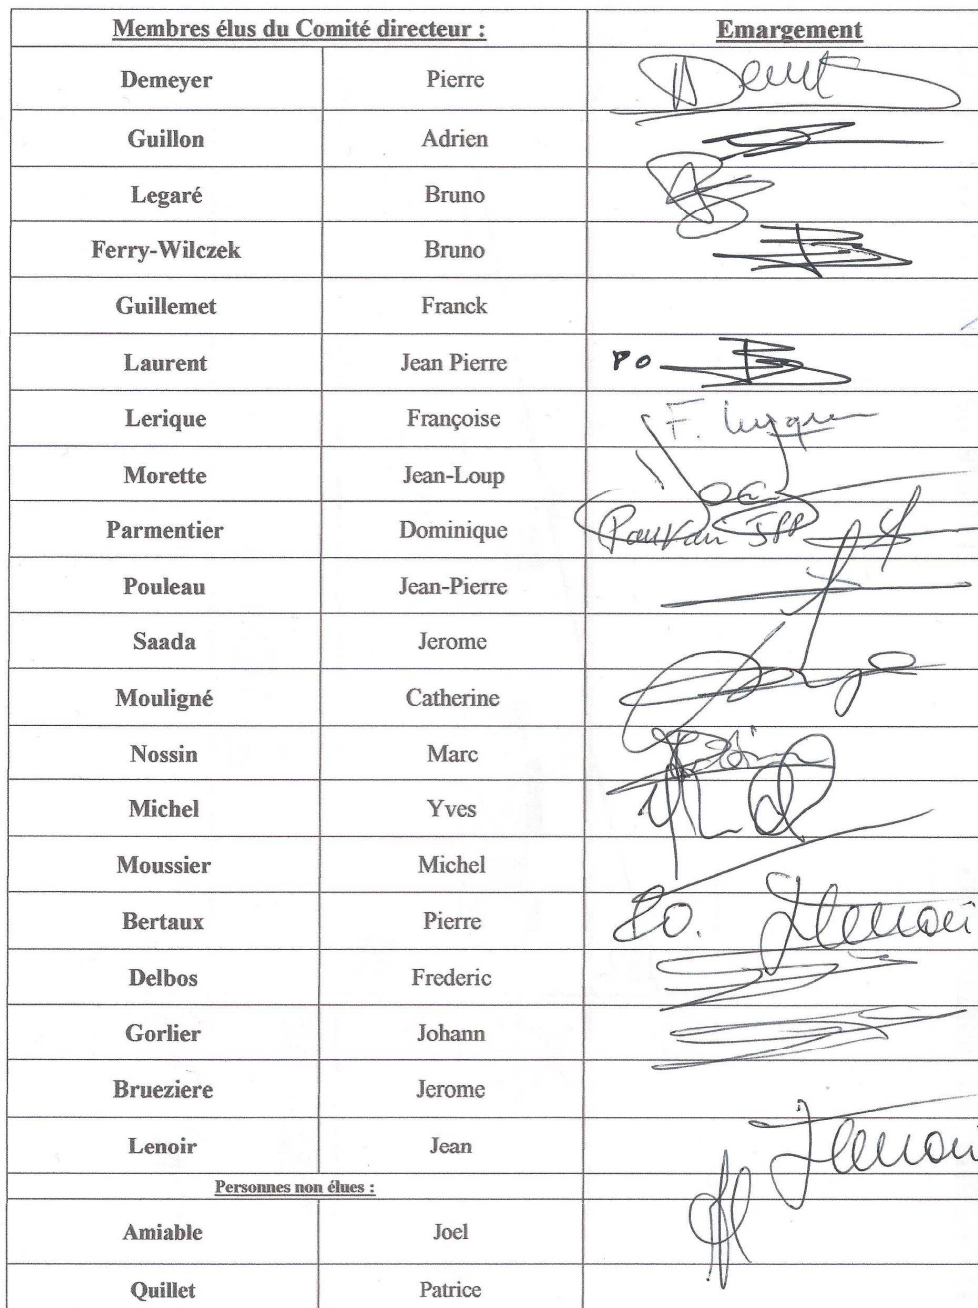 Membres élus du Comité directeur : Emargement
Demeyer Pierre
Guillon Adrien
Legaré Bruno
Ferry-Wilczek Bruno
Guillemet Franck
Laurent Jean Pierre PO
Lerique Françoise F.
Morette Jean-Loup
Parmentier Dominique
Pouleau Jean-Pierre
Saada Jerome
Mouligné Catherine
Nossin Marc
Michel Yves
Moussier Michel
Bertaux Pierre Po. Jlenoir
Delbos Frederic
Gorlier Johann
Brueziere Jerome
Lenoir Jean Jlenoir
Personnes non élues :
Amiable Joel
Quillet Patrice